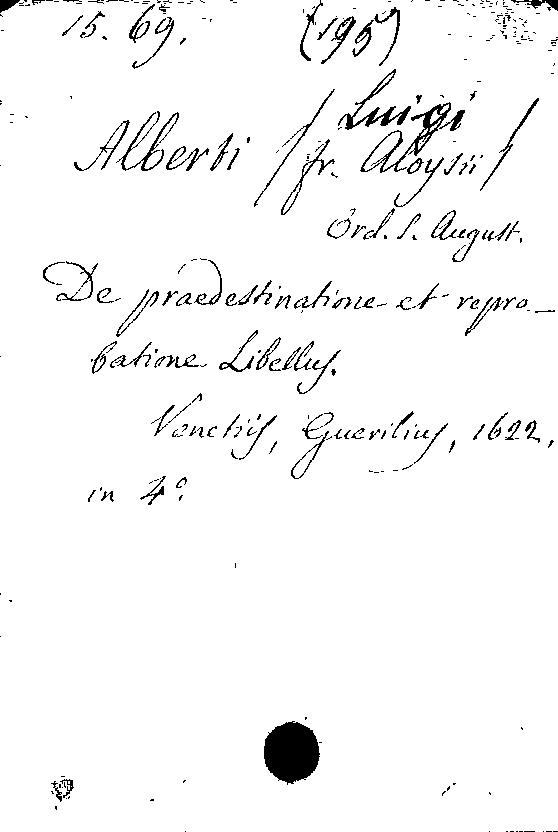 15. 69. (195)
Luigi
Alberti / fr. Aloysii /
Ord. S. August.
De praedestinatione et repro-
batione Libellus.
Venetiis, Guerilius, 1622,
in 4º.